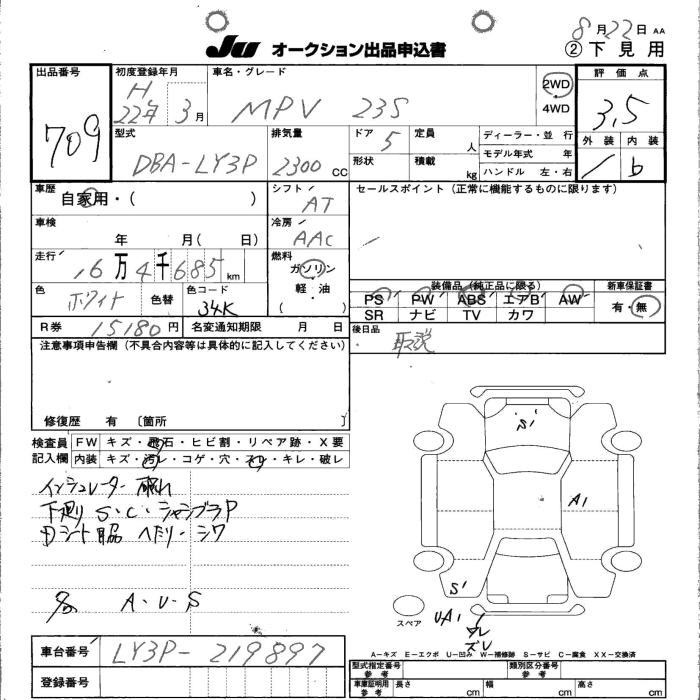 8月22日 AA
JU オークション出品申込書
②下見用
出品番号
709
初度登録年月
H
22年 3月
車名・グレード
MPV 23S
2WD
4WD
評価点
3.5
外装 内装
/ b
型式
DBA-LY3P
排気量
2300 CC
ドア 5
形状
定員 人
積載 kg
ディーラー・並行
モデル年式 年
ハンドル 左・右
車歴
自家用・( )
シフト
AT
セールスポイント(正常に機能するものに限ります)
車検
年 月( 日)
冷房
AAC
走行
6万4千685 km
燃料
ガソリン
軽・油
( )
色
ホワイト
色替
色コード
34K
装備品(純正品に限る)
PS PW ABS エアB AW
SR ナビ TV カワ
新車保証書
有・無
R券 15180円
名変通知期限 月 日
後日品
取説
注意事項申告欄(不具合内容等は具体的に記入してください)
修復歴 有 〔箇所 〕
検査員
記入欄
FW キズ・飛石・ヒビ割・リペア跡・X要
内装 キズ・汚レ・コゲ・穴・スレ・キレ・破レ
インシュレーター 破れ
下廻り S・C・シャシブラP
Dシート脇 へたり・シワ
A・U・S
S'
A1
S'
UA1
スペア
車台番号 LY3P-219897
登録番号
A-キズ E-エクボ U-凹み W-補修跡 S-サビ C-腐食 XX-交換済
型式指定番号
参考
類別区分番号
参考
車庫証明用
参考
長さ cm 幅 cm 高さ cm